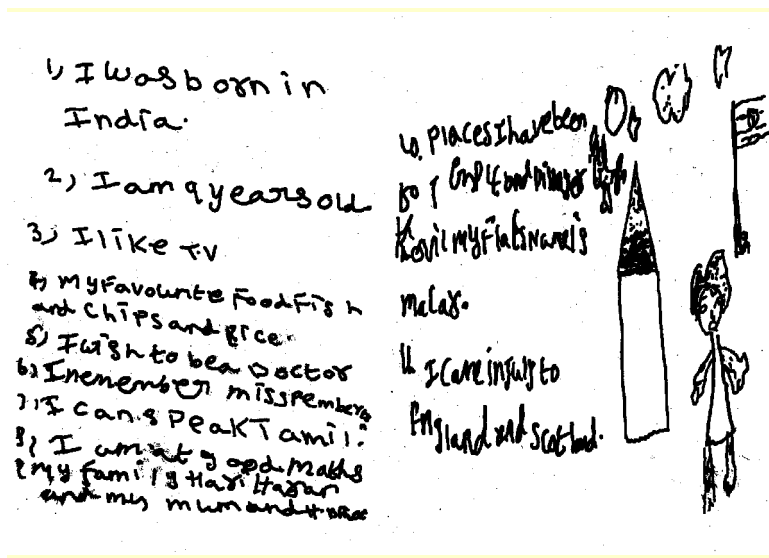 1) I was born in
India.
2) I am 9 years old
3) I like T.V
4) My favourite food Fish
and chips and Rice.
5) I wish to be a Doctor
6) I remember miss pember
7) I can speak Tamil.
8) I am at good maths
9 My family Hari Haran
and my mum and
10. Places I have been
to
Kovil My Flats Name is
malar.
11 I came in July to
England and Scotland.